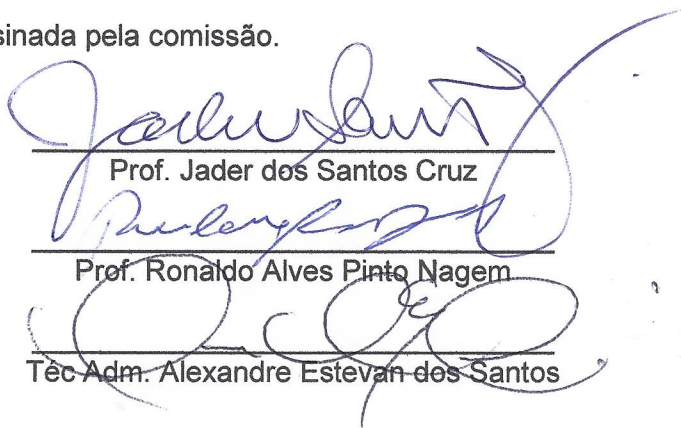 sinada pela comissão.
Prof. Jader dos Santos Cruz
Prof. Ronaldo Alves Pinto Nagem
Téc Adm. Alexandre Estevan dos Santos